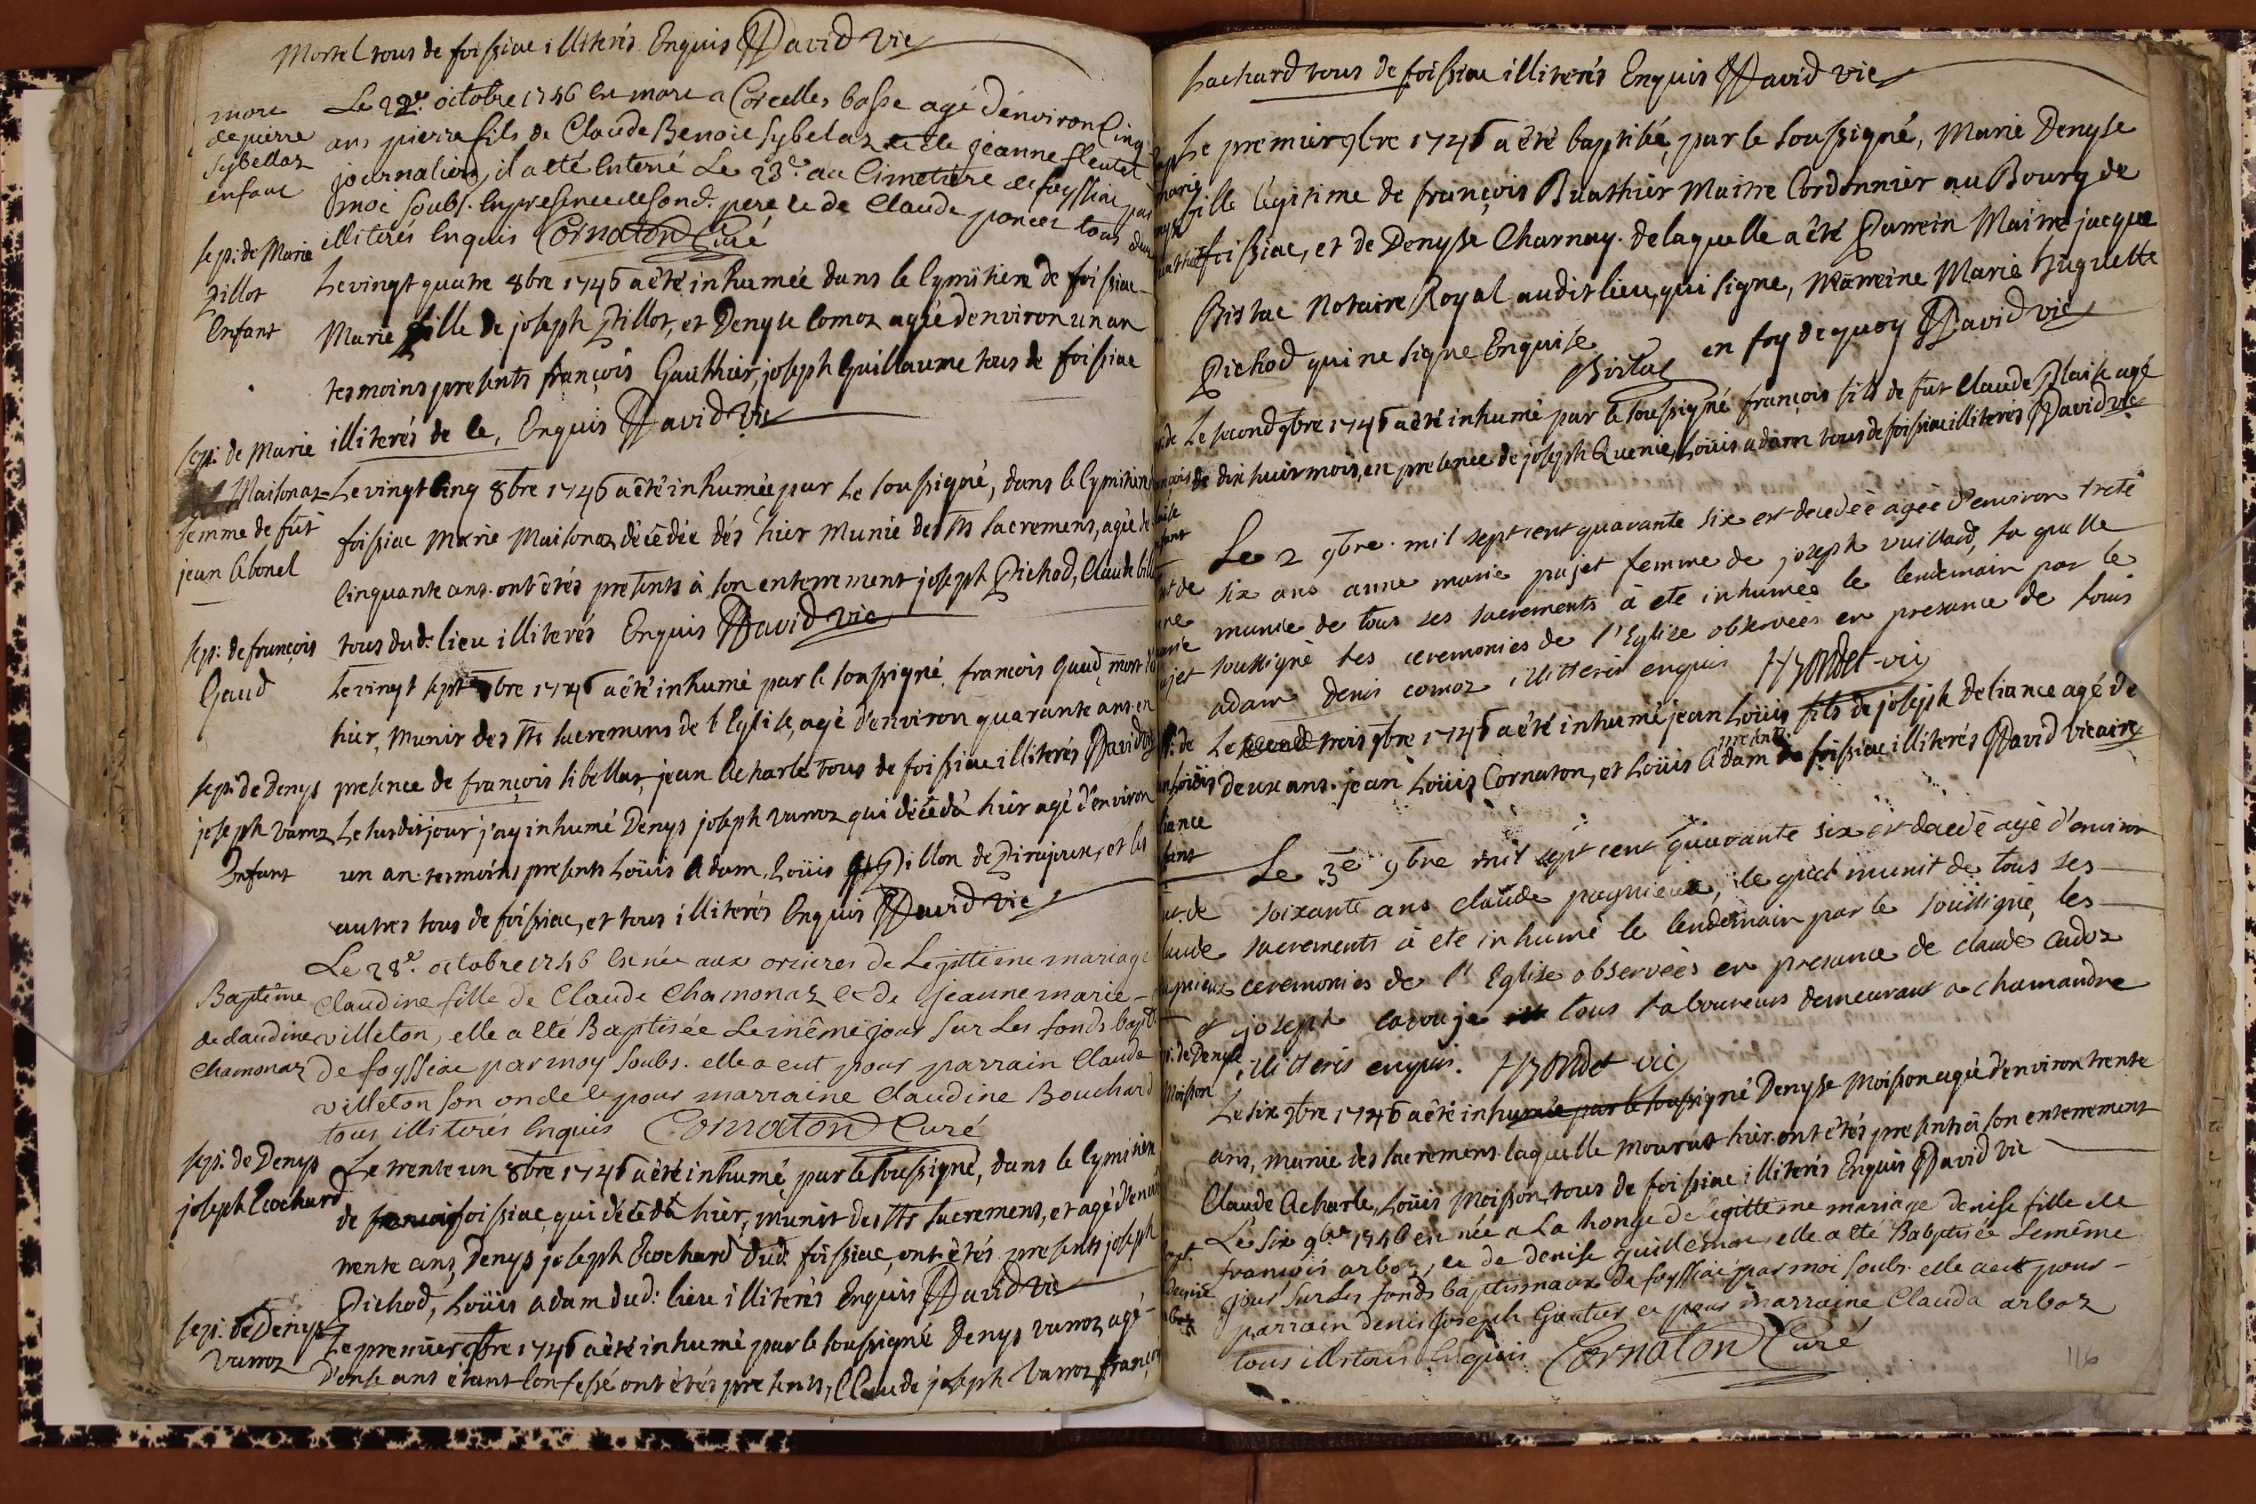 Mortel tous de foissiac illiterés Enquis David vic
more de pierre Sybellaz enfant
Le 22e octobre 1746 En more a Corcelles basse agé d'environ Cinq
ans pierre fils de Claude Benoit Sybelaz et de jeanne fleutet
journaliers, il a eté Enterré Le 23e au Cimetiere de foyssiac par
moi soubs. En presence de sond. pere et de Claude poncet tous deux
illiterés Enquis Cornaton Curé
sep: de Marie Pillot Enfant
Le vingt quatre 8bre 1746 a été inhumée dans le Cymitiere de foissiac
Marie fille de joseph Pillot, et Denyse Comoz agée d'environ un an
tesmoins presents françois Gauthier, joseph Guillaume tous de foissiac
illiterés de ce, Enquis David vic
sep: de Marie Maisonaz femme de fût jean Abonel
Le vingt Cinq 8bre 1746 a été inhumée par le soussigné, dans le Cymitiere
foissiac Marie Maisonaz décédée dés hier munie des Sts sacremens, agée de
Cinquante ans. ont étés presents à son enterrement joseph Pichod, Claude
tous dud: lieu illiterés Enquis David vic
sep: de françois Gaud
Le vingt sept 8bre 1746 a été inhumé par le soussigné françois Gaud, mort
hier, munir des Sts sacremens de l'Eglise, agé d'environ quarante ans en
presence de françois sibellas, jean Acharle tous de foissiac illiterés David vic
sep: de Denys joseph Varroz Enfant
Le susdit jour j'ay inhumé Denys joseph Varroz qui décéda hier agé d'environ
un an. tesmoins presents Loüis Adam, Loüis Pillon de Pirajoux, et les
autres tous de foissiac, et tous illiterés Enquis David vic
Baptême de claudine Chamonaz
Le 28e octobre 1746 Est née aux orcieres de Legittime mariage
Claudine fille de Claude Chamonaz et de jeanne marie
villeton, elle a eté Baptisée Le même jour sur Les fonds bapt.
de foyssiac par moy soubs. elle a eut pour parrain Claude
villeton son oncle et pour marraine Claudine Bouchard
tous illiterés Enquis Cornaton Curé
sep: de Denys joseph Ecochard
Le trente un 8bre 1746 a été inhumé, par le soussigné, dans le Cymitiere
de foissiac, qui décéda hier, munit des Sts sacremens, et agé d'environ
trente ans, Denys joseph Ecochard dud. foissiac, ont étés presents joseph
Pichod, Loüis adam dud: lieu illiterés Enquis David vic
sep: de Denys Varroz
Le premier 9bre 1746 a été inhumé par le soussigné Denys varroz agé
d'onse ans étant Confessé ont étés presents, Claude joseph Varroz françois
Lachard tous de foissiac illiterés Enquis David vic
Le premier 9bre 1746 a été baptisée, par le soussigné, Marie Denyse
fille légitime de françois Buathier Maitre Cordonnier au Bourg de
foissiac, et de Denyse Charnay. de laquelle a été Parrein Maitre jacque
Bistac Notaire Royal audit lieu, qui signe, Marreine Marie huguette
Pichod qui ne signe Enquise en foy de quoy David vic
Bistac
Le second 9bre 1746 a été inhumé par le soussigné françois fils de fut Claude Plaise agé
de dix huit mois, en presence de joseph Quenie, Loüis adam tous de foissiac illiterés David vic
Le 2 9bre. mil sept cent quarante six est decedée agée d'environ trete
six ans anne marie pujet femme de joseph vuillard, la quelle
munie de tous ses sacrements à eté inhumée le lendemain par le
soussigné les ceremonies de l'Eglise observées en presance de Louis
adam denis comoz illitteris enquis Hyondet vic
Le second trois 9bre 1746 a été inhumé jean Loüis fils de joseph deliance agé de
deux ans. jean Loüis Cornaton, et Loüis Adam presents de foissiac illiterés David vicaire
Le 3e 9bre mil sept cent quarante six est decedé agé d'environ
soixante ans claude pagnieux, le quel munit de tous ses
sacrements à eté inhumé le lendemain par le soussigné, les
ceremonies de l'Eglise observées en presance de claude cadoz
et joseph tous laboureurs demeurant a chamandre
illitteris enquis. Hyondet vic
Le six 9bre 1746 a été inhumée par le soussigné Denyse Moisson agée d'environ trente
ans, munie des sacremens. laquelle mourut hier. ont étés presents à son enterrement
Claude Acharle, Loüis Moisson, tous de foissiac illiterés Enquis David vic
Le six 9bre 1746 est née a La honge de Legittime mariage denise fille de
françois arboz, et de denise guillemoz, elle a eté Baptisée Le même
jour sur Les fonds baptismaux de foyssiac par moi soubs. elle a eut pour
parrain denis joseph Gautier et pour marraine Clauda arboz
tous illiterés Enquis Cornaton Curé
116